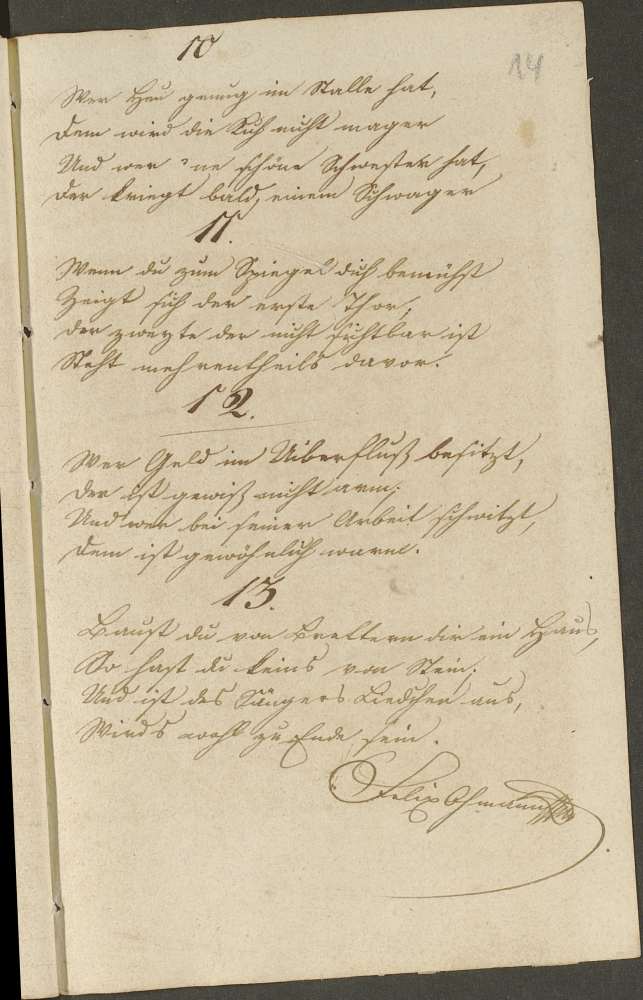 10
14
Wer Heu genug im Stalle hat,
Dem wird die Kuh nicht mager
Und wer 'ne schöne Schwester hat,
Der kriegt bald, einem Schwager
11.
Wenn du zum Spiegel dich bemühst
Zeigt sich der erste Thor,
Der zweyte der nicht sichtbar ist
Steht mehrentheils davor.
12.
Wer Geld im Uiberfluß besitzt,
Der ist gewiß nicht arm;
Und wer bei seiner Arbeit schwitzt,
Dem ist gewöhnlich warm.
13.
Baust du von Brettern dir ein Haus,
So hast du keins von Stein;
Und ist des Sängers Liedchen aus,
Wird's wohl zu Ende sein.
Felix Ohmann